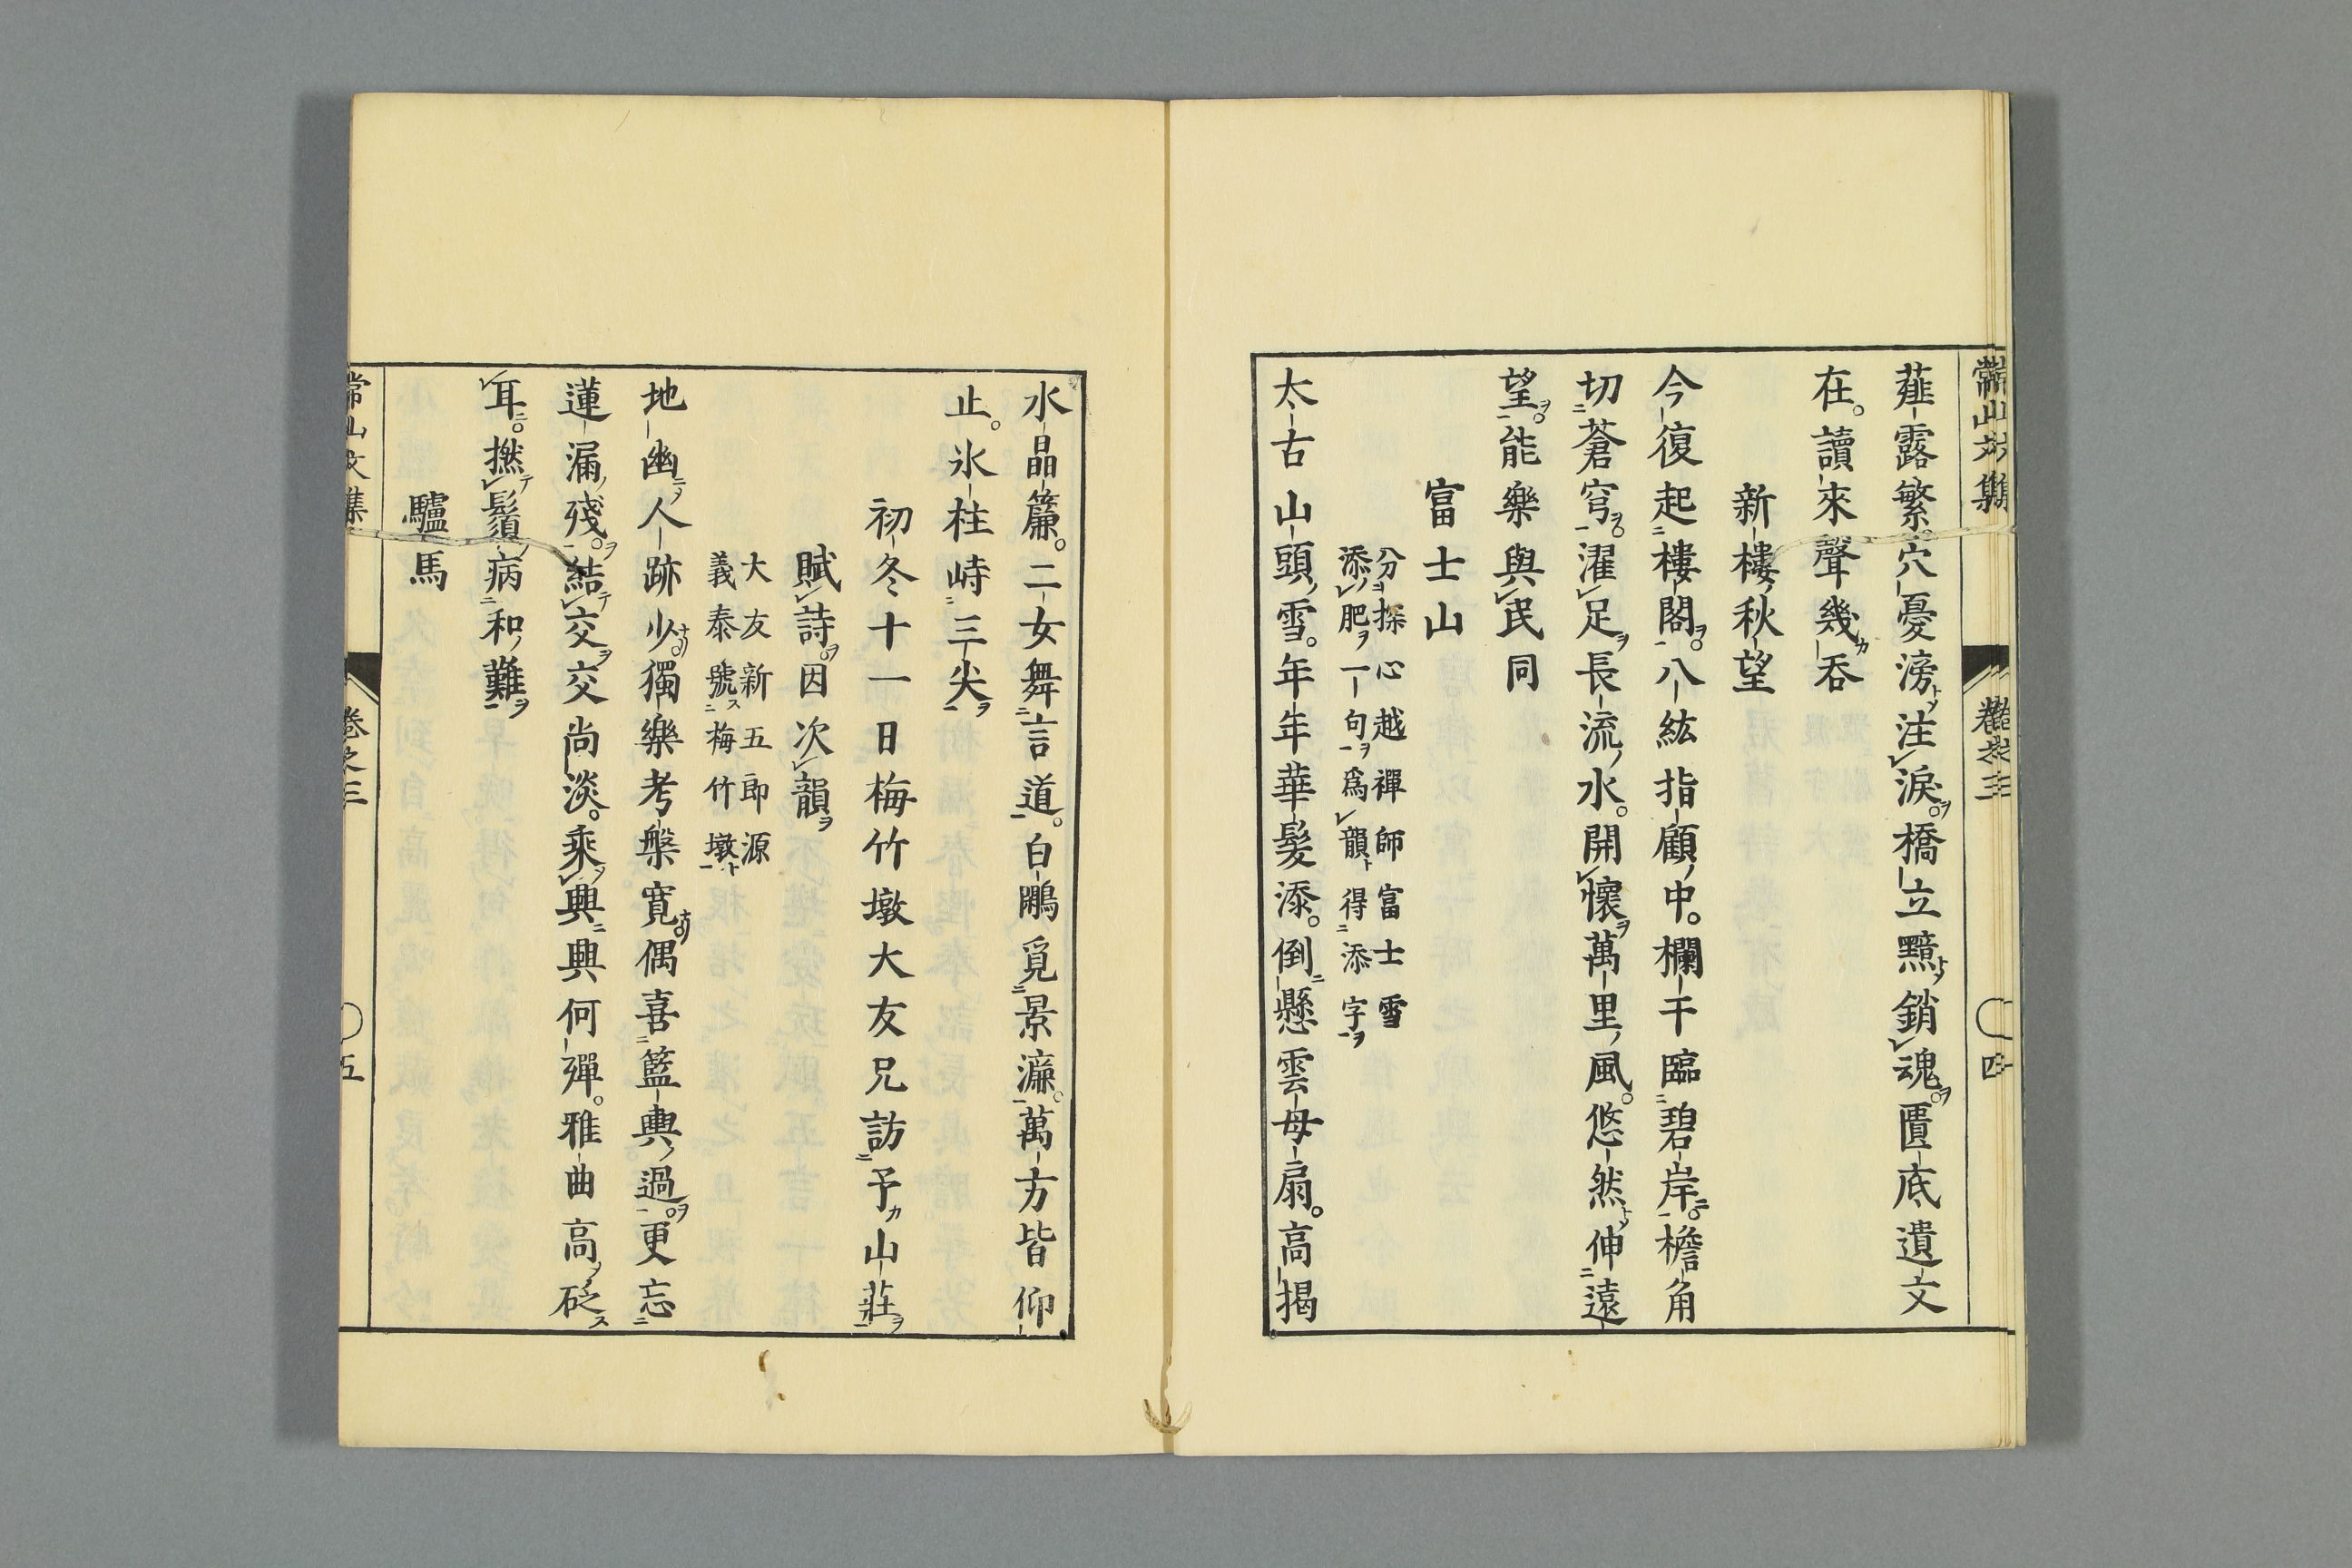 常山文集
卷之三
四
薤露繁穴憂滂注淚橋立黯銷魂匱底遺文
在讀來聲幾吞
新樓秋望
今復起樓閣八紘指顧中欄干臨碧岸檐角
切蒼穹濯足長流水開懷萬里風悠然伸遠
望能樂與民同
富士山
分探心越禪師富士雪
添肥一句爲韻得添字
太古山頭雪年年華髮添倒懸雲母扇高揭
水晶簾二女舞言道白鷴覓景濂萬方皆仰
止氷柱峙三尖
初冬十一日梅竹墩大友兄訪予山莊
賦詩因次韻
大友新五郎源
義泰號梅竹墩
地幽人跡少獨樂考槃寬偶喜籃輿過更忘
蓮漏殘結交交尚淡乘興興何殫雅曲高砭
耳撚鬚病和難
驢馬
常山文集
卷之三
五